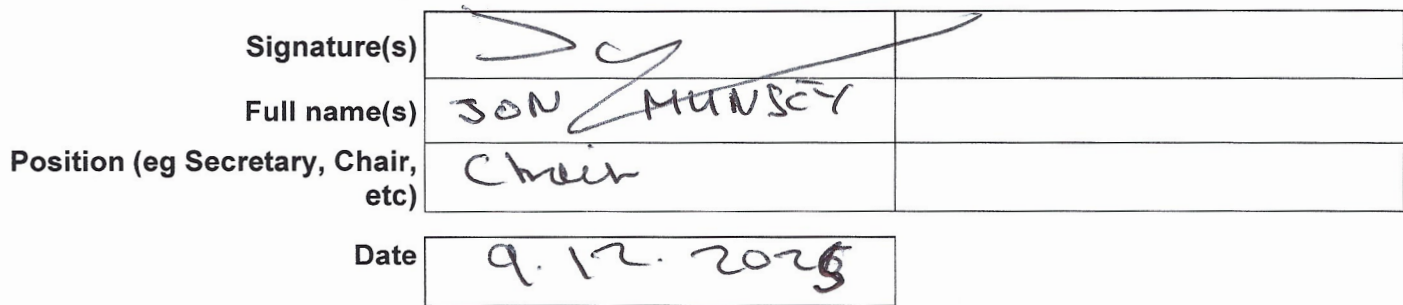 Signature(s)
Full name(s) JON MUNSEY
Position (eg Secretary, Chair,
etc) Chair
Date 9.12.2025